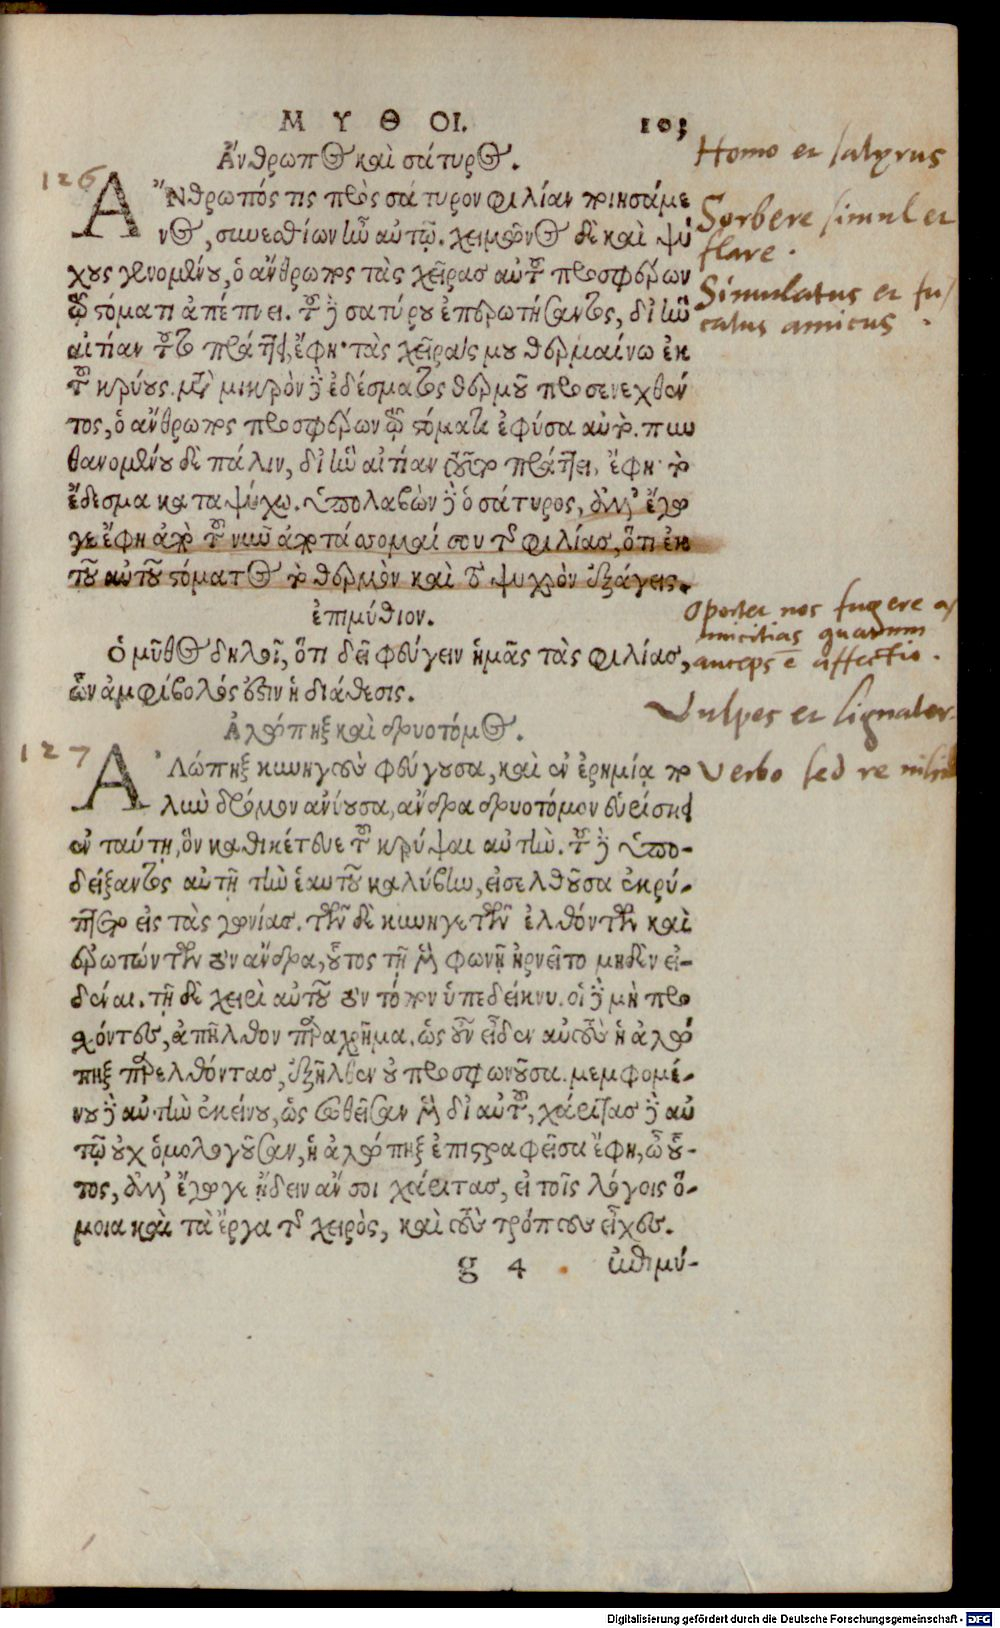 ΜΥΘΟΙ. 103
Ἄνθρωπος καὶ σάτυρος.
Homo et satyrus
126
ἌΝθρωπός τις πρὸς σάτυρον φιλίαν ποιησάμε
Sorbere simul et
νος, συνεσθίων ἦν αὐτῷ. χειμῶνος δὲ καὶ ψύ
flare.
χους γενομένου, ὁ ἄνθρωπος τὰς χεῖρας αὐτοῦ προσφέρων
Simulatus et fu/
τῷ στόματι ἀπέπνει. τοῦ δὲ σατύρου ἐπερωτήσαντος, δι' ἣν
catus amicus.
αἰτίαν τοῦτο πράττει, ἔφη· τὰς χεῖράς μου θερμαίνω ἐκ
τοῦ κρύους. μετὰ μικρὸν δὲ ἐδέσματος θερμοῦ προσενεχθέν
τος, ὁ ἄνθρωπος προσφέρων τῷ στόματι ἐφύσα αὐτό. πυν
θανομένου δὲ πάλιν, δι' ἣν αἰτίαν τοῦτο πράττει, ἔφη· τὸ
ἔδεσμα καταψύχω. ὑπολαβὼν δὲ ὁ σάτυρος, ἀλλ' ἔγω
γε ἔφη ἀπὸ τοῦ νῦν ἀποτάσσομαί σου τῆς φιλίας, ὅτι ἐκ
τοῦ αὐτοῦ στόματος τὸ θερμὸν καὶ τὸ ψυχρὸν ἐξάγεις.
ἐπιμύθιον.
Oportet nos fugere a/
micitias quarum
Ὁ μῦθος δηλοῖ, ὅτι δεῖ φεύγειν ἡμᾶς τὰς φιλίας,
anceps ē affectio.
ὧν ἀμφίβολός ἐστιν ἡ διάθεσις.
Vulpes et lignator.
Ἀλώπηξ καὶ δρυοτόμος.
127
ἈΛώπηξ κυνηγοὺς φεύγουσα, καὶ ἐν ἐρημίᾳ πο
Verbo sed re nihil
λὺν δρόμον ἀνύουσα, ἄνδρα δρυοτόμον εὑρίσκει
ἐν ταύτῃ, ὃν καθικέτευε τοῦ κρύψαι αὐτήν. τοῦ δὲ ὑπο-
δείξαντος αὐτῇ τὴν ἑαυτοῦ καλύβην, εἰσελθοῦσα ἐκρύ-
πτετο εἰς τὰς γωνίας. τῶν δὲ κυνηγετῶν ἐλθόντων καὶ
ἐρωτώντων τὸν ἄνδρα, οὗτος τῇ μὲν φωνῇ ἠρνεῖτο μηδὲν εἰ-
δέναι. τῇ δὲ χειρὶ αὐτοῦ τὸν τόπον ὑπεδείκνυ. οἱ δὲ μὴ προ
σχόντες, ἀπῆλθον παραχρῆμα. ὡς οὖν εἶδεν αὐτοὺς ἡ ἀλώ
πηξ παρελθόντας, ἐξῆλθεν οὐ προσφωνοῦσα. μεμφομέ-
νου δὲ αὐτὴν ἐκείνου, ὡς σωθεῖσαν μὲν δι' αὐτοῦ, χάριτας δὲ αὐ
τῷ οὐχ ὁμολογοῦσαν, ἡ ἀλώπηξ ἐπιστραφεῖσα ἔφη, ὦ οὗ-
τος, ἀλλ' ἔγωγε ᾔδειν ἄν σοι χάριτας, εἰ τοῖς λόγοις ὅ-
μοια καὶ τὰ ἔργα τῆς χειρὸς, καὶ τοὺς τρόπους εἶχες.
g 4 ἐπιμύ-
Digitalisierung gefördert durch die Deutsche Forschungsgemeinschaft - DFG